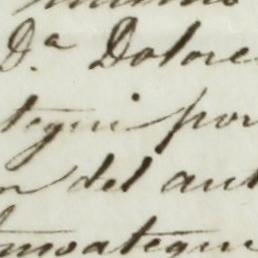 D.ª Dolore
tegui por
n del aut
moategui